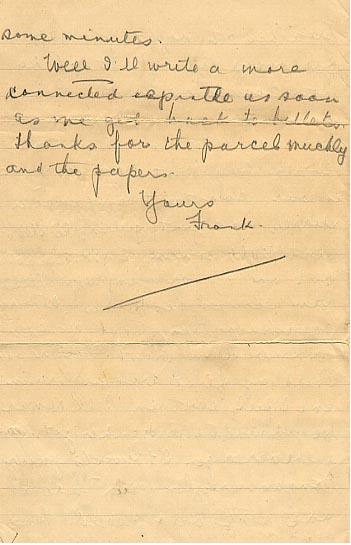 some minutes.
Well I'll write a more
connected espistle as soon
as we get back to billets.
Thanks for the parcel muchly
and the papers.
Yours
Frank.